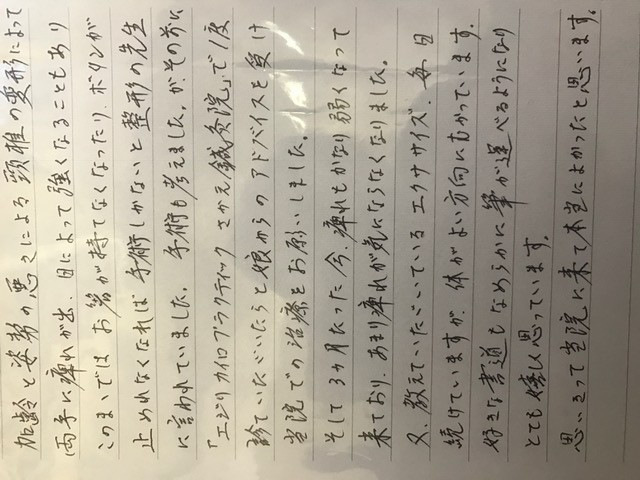 加齢と姿勢の悪さによる頸椎の変形によって
両手に痺れが出、日によって強くなることもあり
このままではお箸が持てなくなったり、ボタンが
止められなくなれば手術しかないと整形の先生
に言われていました。手術も考えましたが、その前に
「エジリカイロプラクティック さかえ鍼灸院」で1度
診ていただいたらと娘からのアドバイスを受け
当院での治療をお願いしました。
そして3ヶ月たった今、痺れもかなり弱くなって
来ており、あまり痺れが気にならなくなりました。
又、教えていただいているエクササイズ、毎日
続けていますが、体がよい方向にむかっています。
好きな書道もなめらかに筆が運べるようになり
とても嬉しく思っています。
思いきって当院に来て本当によかったと思います。